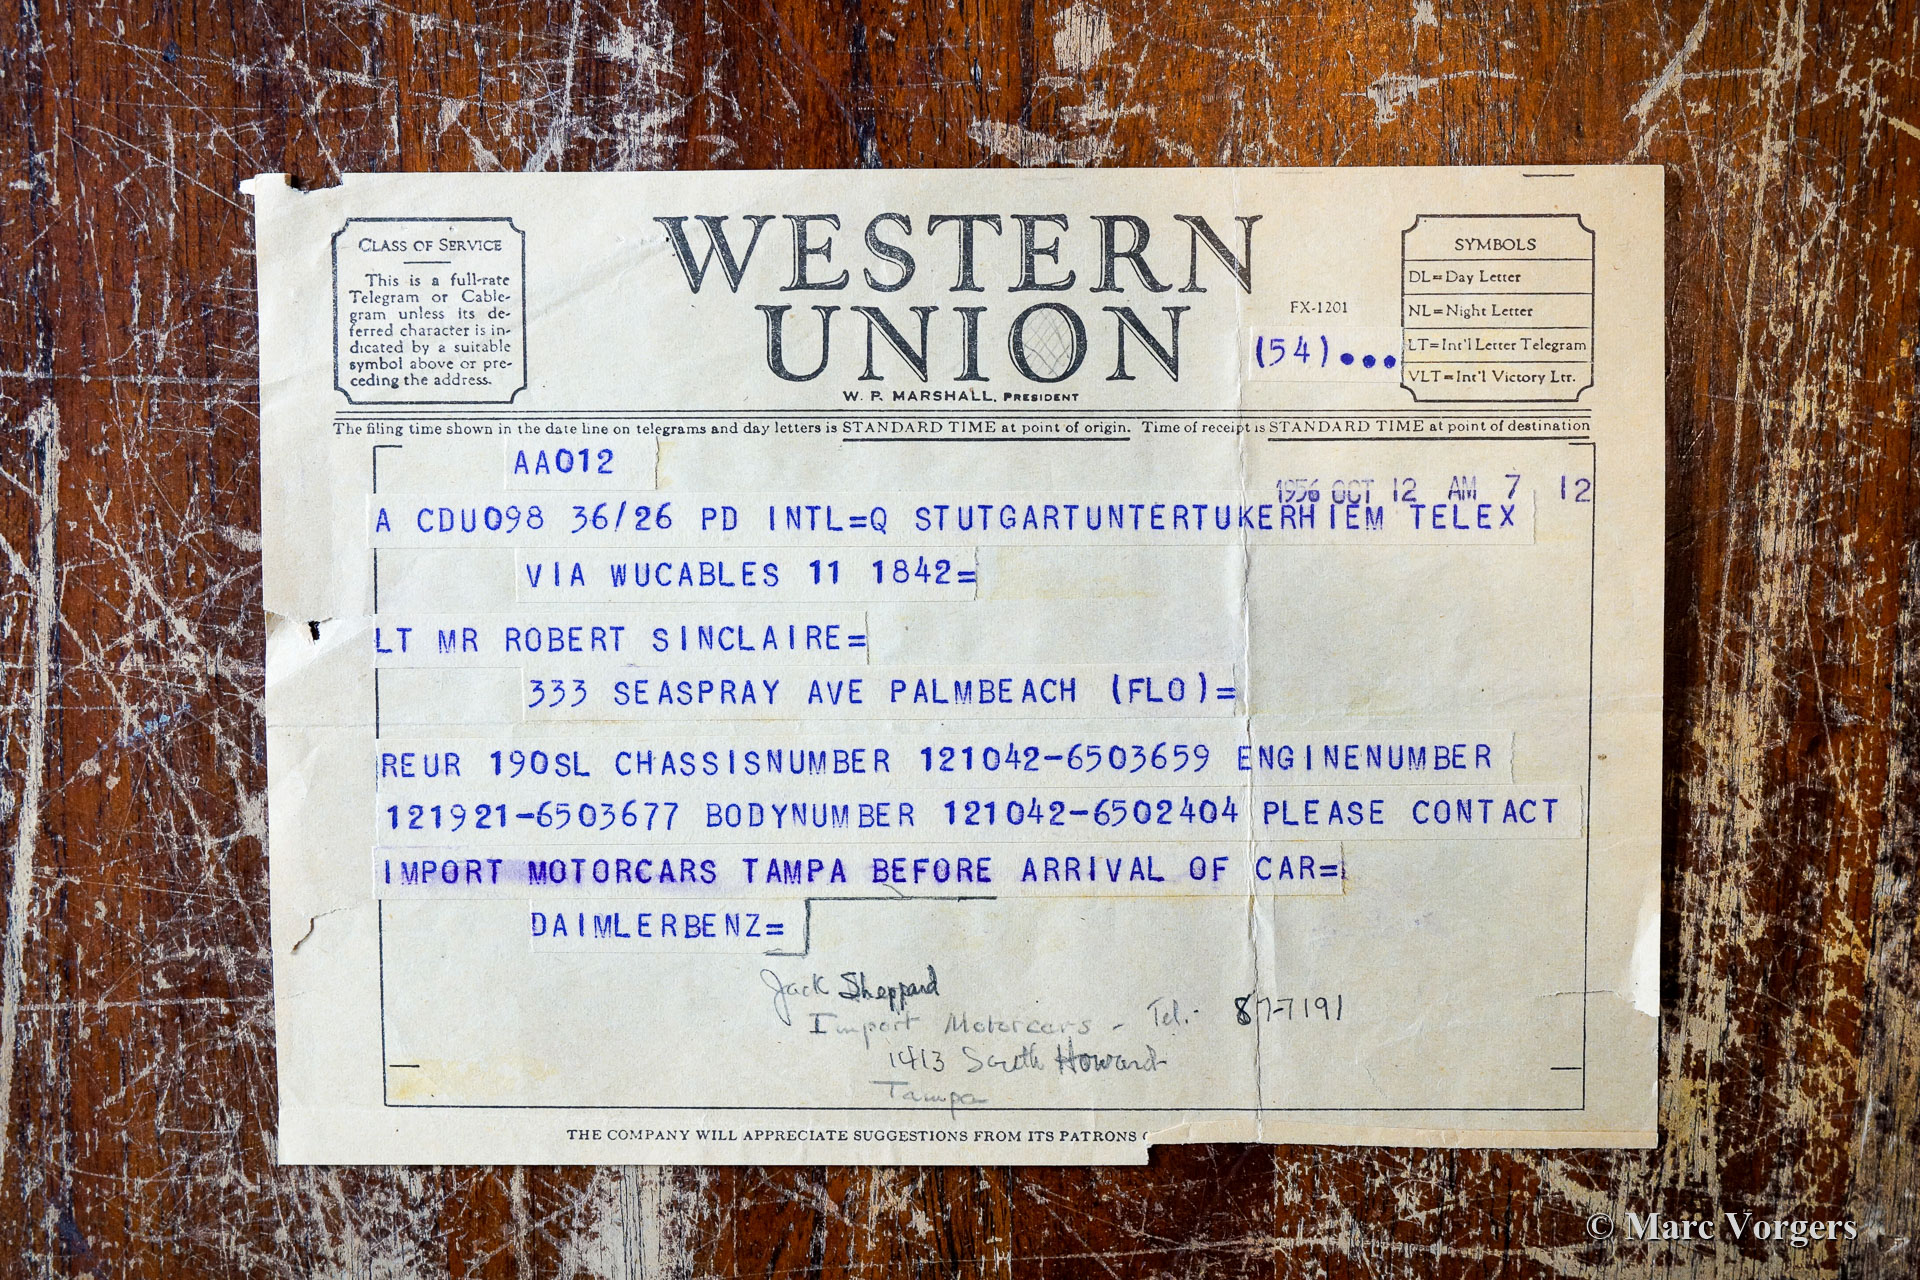 CLASS OF SERVICE
This is a full-rate
Telegram or Cable-
gram unless its de-
ferred character is in-
dicated by a suitable
symbol above or pre-
ceding the address.
WESTERN
UNION
W. P. MARSHALL, PRESIDENT
FX-1201
(54)...
SYMBOLS
DL=Day Letter
NL=Night Letter
LT=Int'l Letter Telegram
VLT=Int'l Victory Ltr.
The filing time shown in the date line on telegrams and day letters is STANDARD TIME at point of origin. Time of receipt is STANDARD TIME at point of destination
AA012
1956 OCT 12 AM 7 12
A CDU098 36/26 PD INTL=Q STUTGARTUNTERTUKERHIEM TELEX
VIA WUCABLES 11 1842=
LT MR ROBERT SINCLAIRE=
333 SEASPRAY AVE PALMBEACH (FLO)=
REUR 190SL CHASSISNUMBER 121042-6503659 ENGINENUMBER
121921-6503677 BODYNUMBER 121042-6502404 PLEASE CONTACT
IMPORT MOTORCARS TAMPA BEFORE ARRIVAL OF CAR=
DAIMLERBENZ=
Jack Sheppard
Import Motorcars - Tel.- 87-7191
1413 South Howard
Tampa
THE COMPANY WILL APPRECIATE SUGGESTIONS FROM ITS PATRONS
© Marc Vorgers